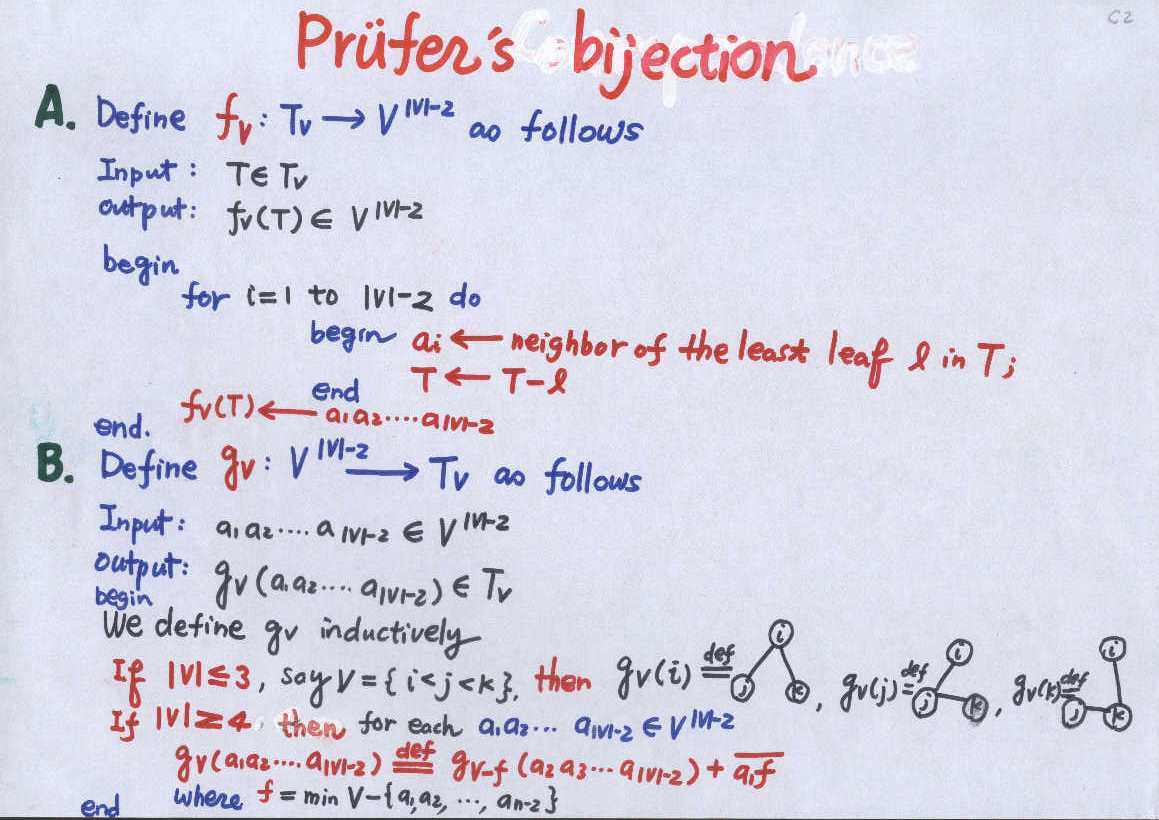 C2
Prüfer's bijection
A. Define f_V : T_V → V^{|V|-2} as follows
Input : T ∈ T_V
output: f_V(T) ∈ V^{|V|-2}
begin
for i=1 to |V|-2 do
begin a_i ← neighbor of the least leaf l in T;
T ← T-l
end
f_V(T) ← a_1a_2....a_{|V|-2}
end.
B. Define g_V : V^{|V|-2} → T_V as follows
Input: a_1a_2....a_{|V|-2} ∈ V^{|V|-2}
output: g_V(a_1a_2....a_{|V|-2}) ∈ T_V
begin
We define g_V inductively
If |V|≤3, say V={i<j<k}, then g_V(i) def= i j k, g_V(j) def= i j k, g_V(k) def= i j k
If |V|≥4, then for each a_1a_2... a_{|V|-2} ∈ V^{|V|-2}
g_V(a_1a_2....a_{|V|-2}) def= g_{V-f}(a_2a_3...a_{|V|-2}) + \overline{a_1f}
where f = min V-{a_1,a_2, ..., a_{n-2}}
end